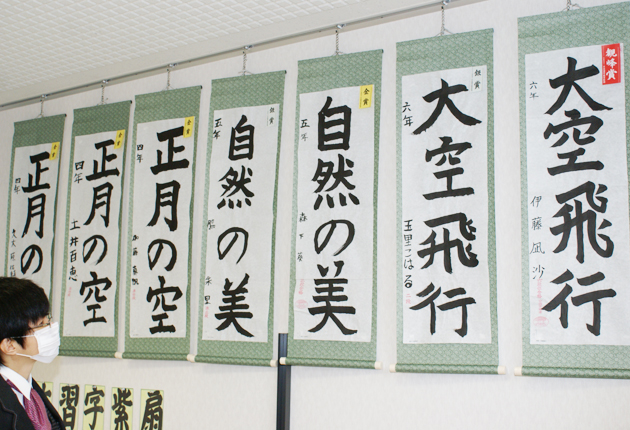 観峰賞
大空飛行
六年 伊藤凪沙
銀賞
大空飛行
六年 玉里こはる
金賞
自然の美
五年
銀賞
自然の美
五年
金賞
正月の空
四年
金賞
正月の空
四年 土井百恵
金賞
正月の
四年
習字紫扇